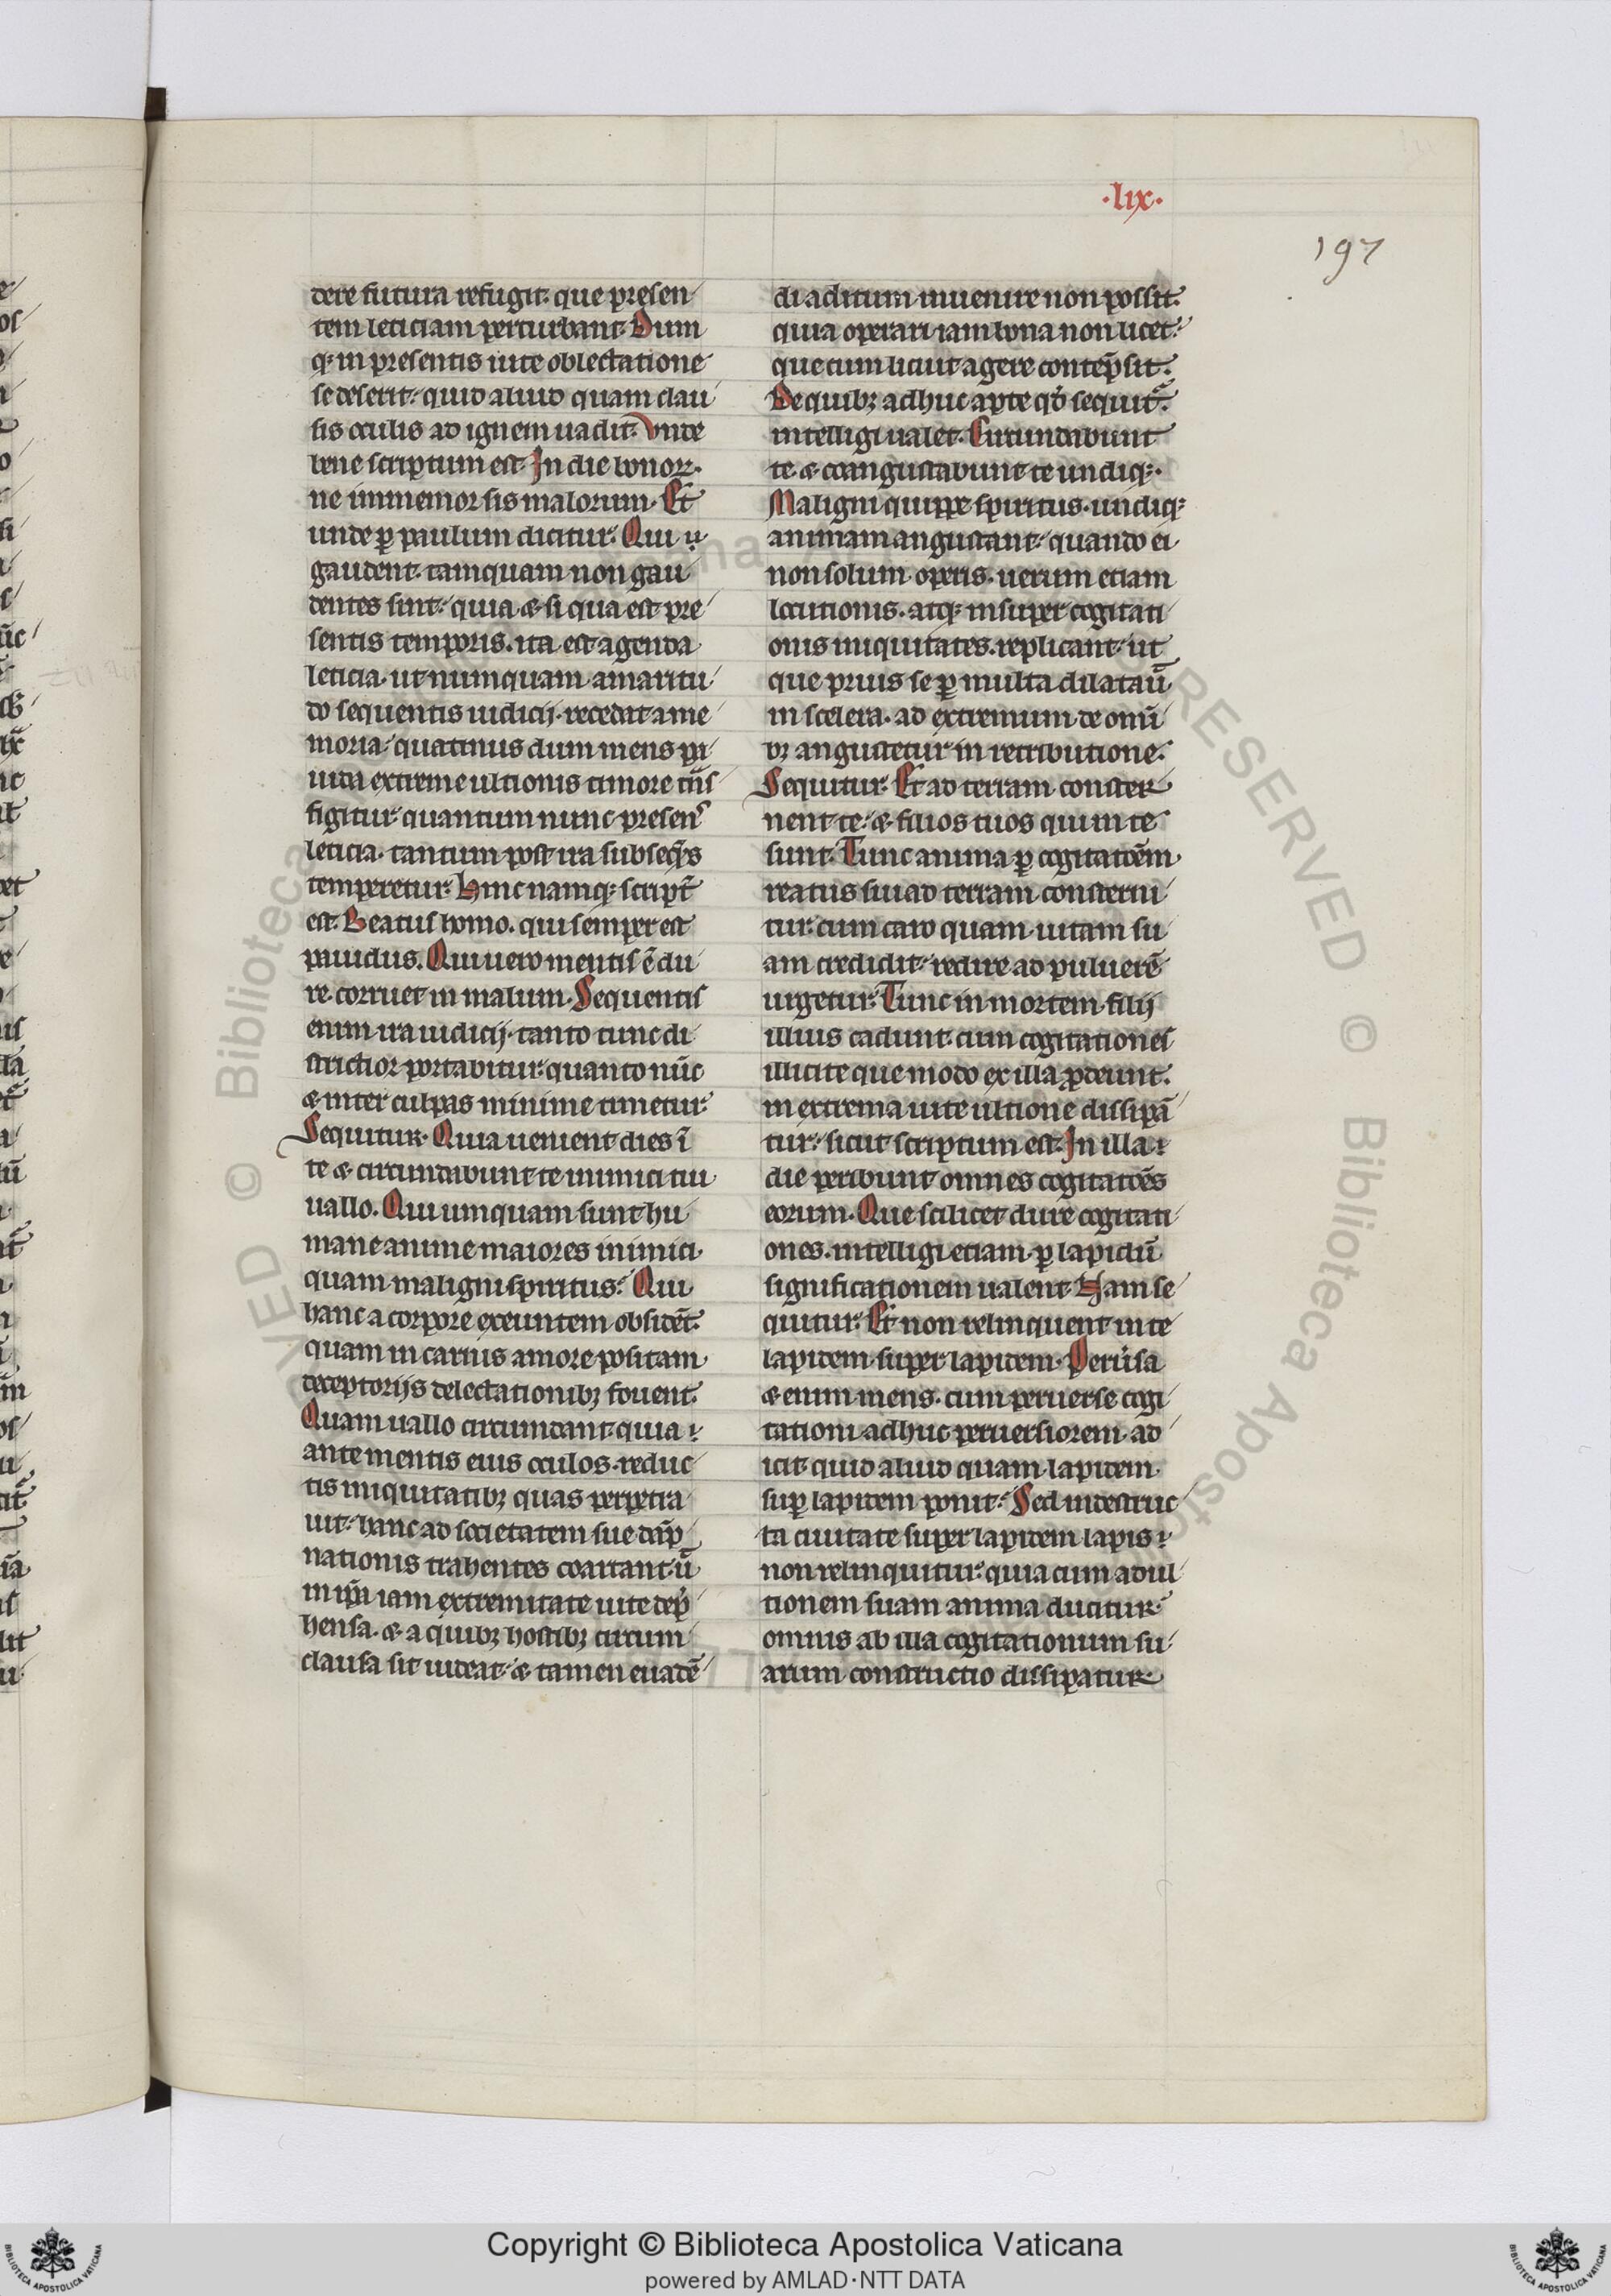 ·lix·
197
dere futura refugit· que presen
tem leticiam perturbant· Dum
q; in presentis uite oblectatione
se deserit· quid aliud quam clau
sis oculis ad ignem uadit· Vnde
bene scriptum est· In die bonoꝝ·
ne immemor sis malorum· Et
unde ꝑ paulum dicitur· Qui
gaudent· tamquam non gau
dentes sint· quia & si qua est pre
sentis temporis· ita est agenda
leticia· ut numquam amaritu
do sequentis iudicij· recedat a me
moria· quatinus dum mens pa
uida extreme ultionis timore t̅ns
figitur quantum nunc presens
leticia· tantum post ira subseq̅ns
temperetur· Hinc namq; script̅
est· Beatus homo· qui semper est
pauidus· Qui uero mentis ē du
re· corruet in malum· Sequentis
enim ira iudicij· tanto tunc di
strictior portabitur· quanto nūc
& inter culpas minime timetur·
Sequitur· Quia uenient dies ī
te & circundabunt te inimici tui
uallo· Qui umquam sunt hu
mane anime maiores inimici
quam maligni spiritus· Qui
hanc a corpore exeuntem obsidēt·
quam in carnis amore positam
deceptorijs delectationibꝫ fouent·
Quam uallo circumdant· quia
ante mentis eius oculos· reduc
tis iniquitatibꝫ quas perpetra
uit· hanc ad societatem sue dāp
nationis trahentes coartant· ū
in ip̅a iam extremitate uite dep̅
hensa· & a quibꝫ hostibꝫ circum
clausa sit uideat· & tamen euadē
di aditum inuenire non possit·
quia operari iam bona non licet·
que cum licuit agere contēpsit·
De quibꝫ adhuc apte qd̅ sequit̅·
intelligi ualet· Circundabunt
te· & coangustabunt te undiq;·
Maligni quippe spiritus· undiq;
animam angustant· quando ei
non solum· operis· uerum etiam
locutionis· atq; insuper cogitati
onis iniquitates· replicant· ut
que prius se ꝑ multa dilatau̅
in scelera· ad extremum· de omī
bꝫ angustetur in retributione·
Sequitur· Et ad terram· conster
nent te· & filios tuos qui in te
sunt· Tunc anima ꝑ cogitatōem
reatus sui ad terram· consterni
tur· cum caro quam· uitam su
am credidit· redire ad puluerē
urgetur· Tunc in mortem· filij
illius cadunt· cum cogitationes
illicite que modo ex illa ꝓdeunt·
in extrema uite ultione dissipā
tur· sicut scriptum est· In illa
die peribunt omnes cogitatōes
eorum· Que scilicet dure cogitati
ones· intelligi etiam· ꝑ lapidū
significationem ualent· Nam se
quitur· Et non relinquent in te
lapidem· super lapidem· Peru̅sa
& enim· mens· cum peruerse cogi
tationi adhuc peruersiorem· ad
icit· quid aliud quam· lapidem
suꝑ lapidem ponit· Sed in destruc
ta ciuitate super lapidem lapis
non relinquitur· quia cum ad ul
tionem suam anima ducitur·
omnis ab illa cogitationum su
arum constructio dissipatur·
Copyright © Biblioteca Apostolica Vaticana
powered by AMLAD·NTT DATA